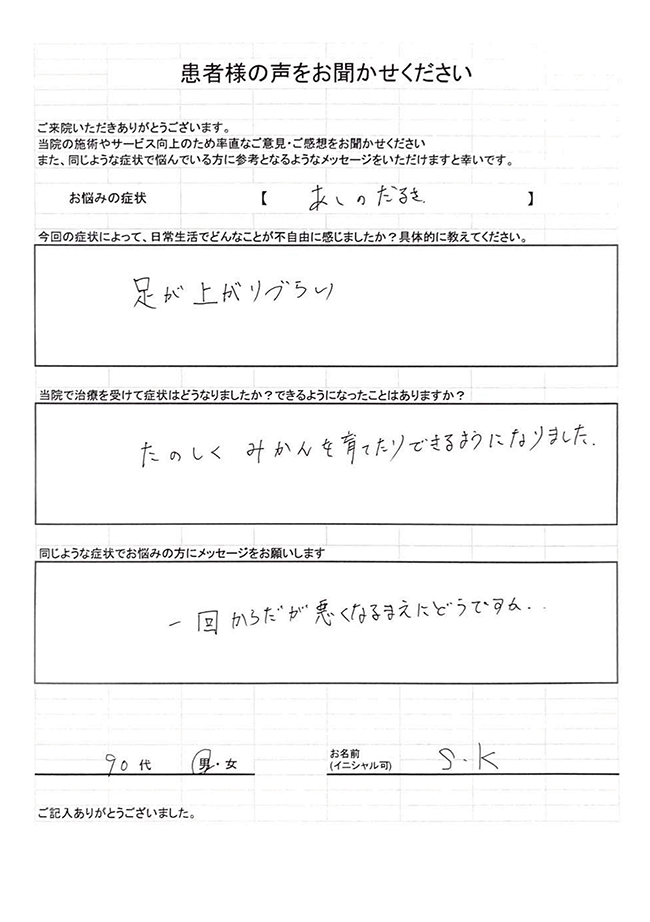 患者様の声をお聞かせください
ご来院いただきありがとうございます。
当院の施術やサービス向上のため率直なご意見・ご感想をお聞かせください
また、同じような症状で悩んでいる方に参考となるようなメッセージをいただけますと幸いです。
お悩みの症状 【 あしのだるさ 】
今回の症状によって、日常生活でどんなことが不自由に感じましたか？具体的に教えてください。
足が上がりづらい
当院で治療を受けて症状はどうなりましたか？できるようになったことはありますか？
たのしく みかんを育てたりできるようになりました.
同じような症状でお悩みの方にメッセージをお願いします
一回からだが悪くなるまえにどうですか...
90代 男・女
お名前
(イニシャル可) S.K
ご記入ありがとうございました。